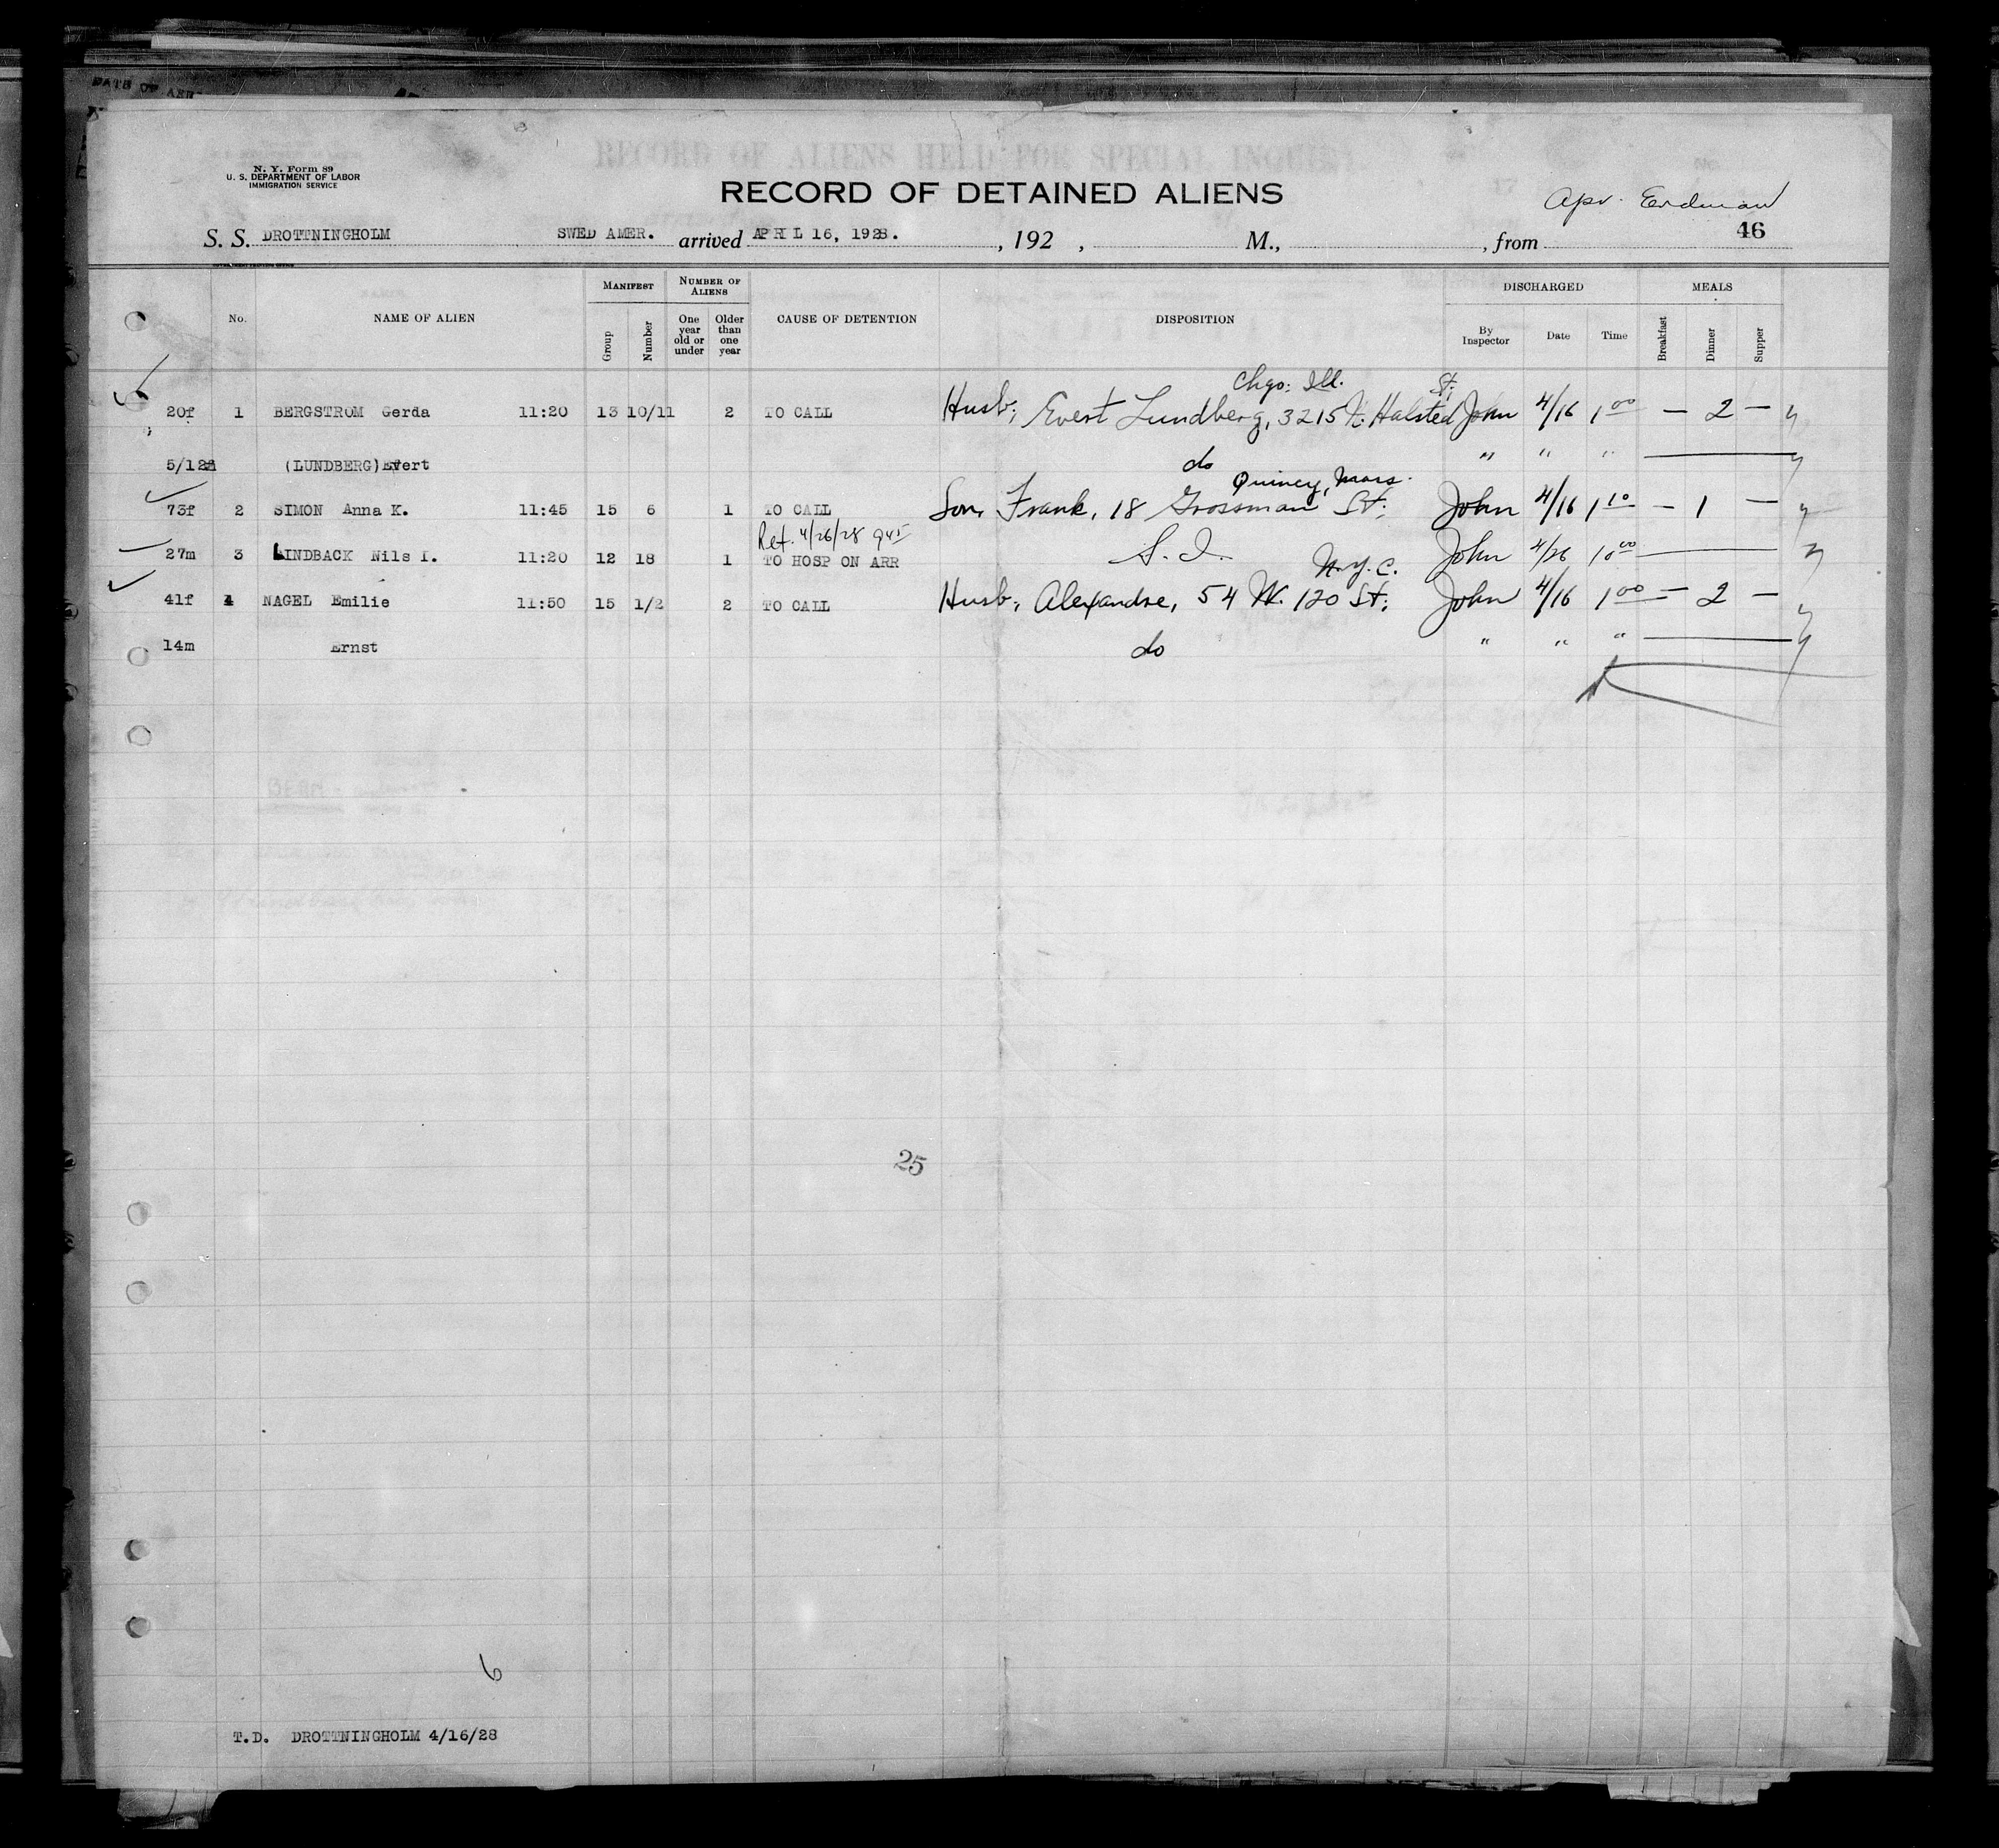 RECORD OF ALIENS HELD FOR SPECIAL INQUIRY
N. Y. Form 89
U. S. DEPARTMENT OF LABOR
IMMIGRATION SERVICE
RECORD OF DETAINED ALIENS
Apr. Erdman
46
S. S. DROTTNINGHOLM SWED AMER. arrived APRIL 16, 1928. , 192 , M., , from
No. NAME OF ALIEN MANIFEST Group Number NUMBER OF ALIENS One year old or under Older than one year CAUSE OF DETENTION DISPOSITION DISCHARGED By Inspector Date Time MEALS Breakfast Dinner Supper
Chgo: Ill. St;
20f 1 BERGSTROM Gerda 11:20 13 10/11 2 TO CALL Husb; Evert Lundberg, 3215 N. Halsted John 4/16 1 00 — 2 —
(LUNDBERG) Evert do " " "
Quincy, Mass.
73f 2 SIMON Anna K. 11:45 15 6 1 TO CALL Son, Frank, 18 Grossman St; John 4/16 1 10 — 1 —
Ret. 4/26/28 945
27m 3 LINDBACK Nils I. 11:20 12 18 1 TO HOSP ON ARR S. I. John 4/26 10 00
N.Y.C.
41f 4 NAGEL Emilie 11:50 15 1/2 2 TO CALL Husb; Alexandre, 54 W. 120 St; John 4/16 1 00 — 2 —
14m Ernst do " " "
25
6
T.D. DROTTNINGHOLM 4/16/28